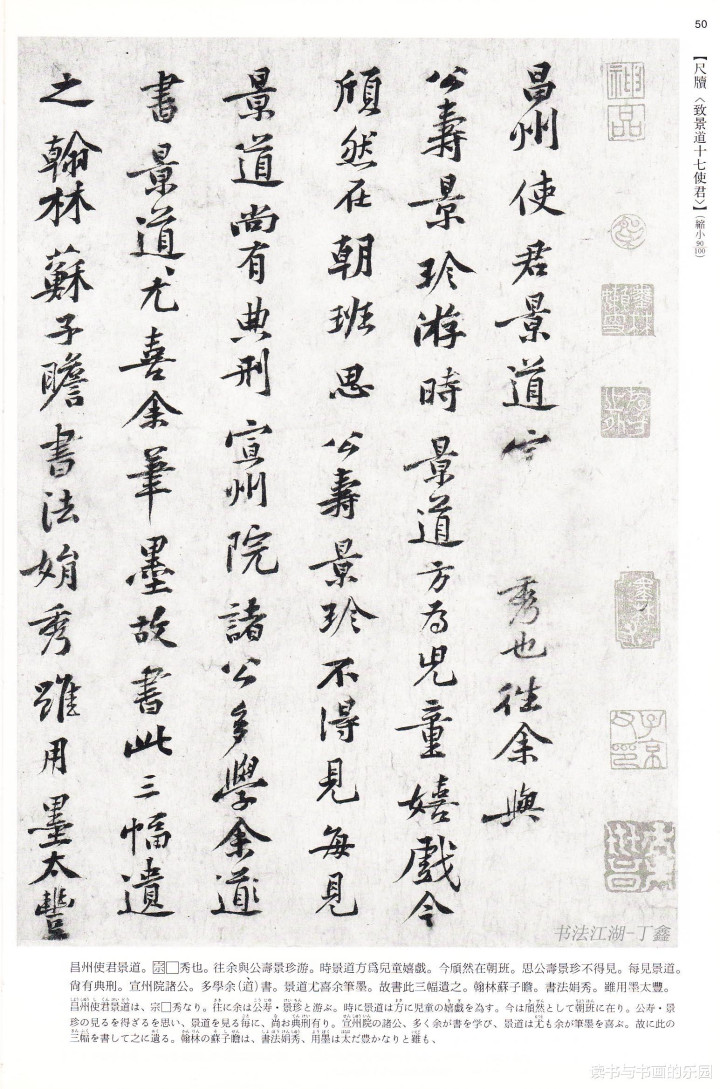 50
【尺牘〈致景道十七使君〉】(縮小90/100)
神品
昌州使君景道宗 秀也往余與
公壽景珍游時景道方為兒童嬉戲今
頎然在朝班思公壽景珍不得見每見
景道尚有典刑宣州院諸公多學余道
書景道尤喜余筆墨故書此三幅遺
之翰林蘇子瞻書法娟秀雖用墨太豐
书法江湖-丁鑫
昌州使君景道。宗□秀也。往余與公壽景珍游。時景道方爲兒童嬉戲。今頎然在朝班。思公壽景珍不得見。每見景道。
尙有典刑。宣州院諸公。多學余(道)書。景道尤喜余筆墨。故書此三幅遺之。翰林蘇子瞻。書法娟秀。雖用墨太豐。
昌州使君景道は、宗□秀なり。往に余は公寿・景珍と游ぶ。時に景道は方に児童の嬉戯を為す。今は頎然として朝班に在り。公寿・景
珍の見るを得ざるを思い、景道を見る毎に、尚お典刑有り。宣州院の諸公、多く余が書を学び、景道は尤も余が筆墨を喜ぶ。故に此の
三幅を書して之に遺る。翰林の蘇子瞻は、書法娟秀、用墨は太だ豊かなりと雖も、
读书与书画的乐园